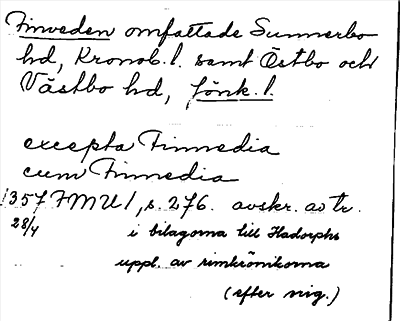 Finveden omfattade Sunnerbo
hd, Kronob. l. samt Östbo och
Västbo hd, Jönk. l.
excepta Finnedia
cum Finnedia
1357 FMU 1, s. 276. avskr. av tr.
28/4
i bilagorna till Hadorphs
uppl. av rimkrönikorna
(efter orig.)